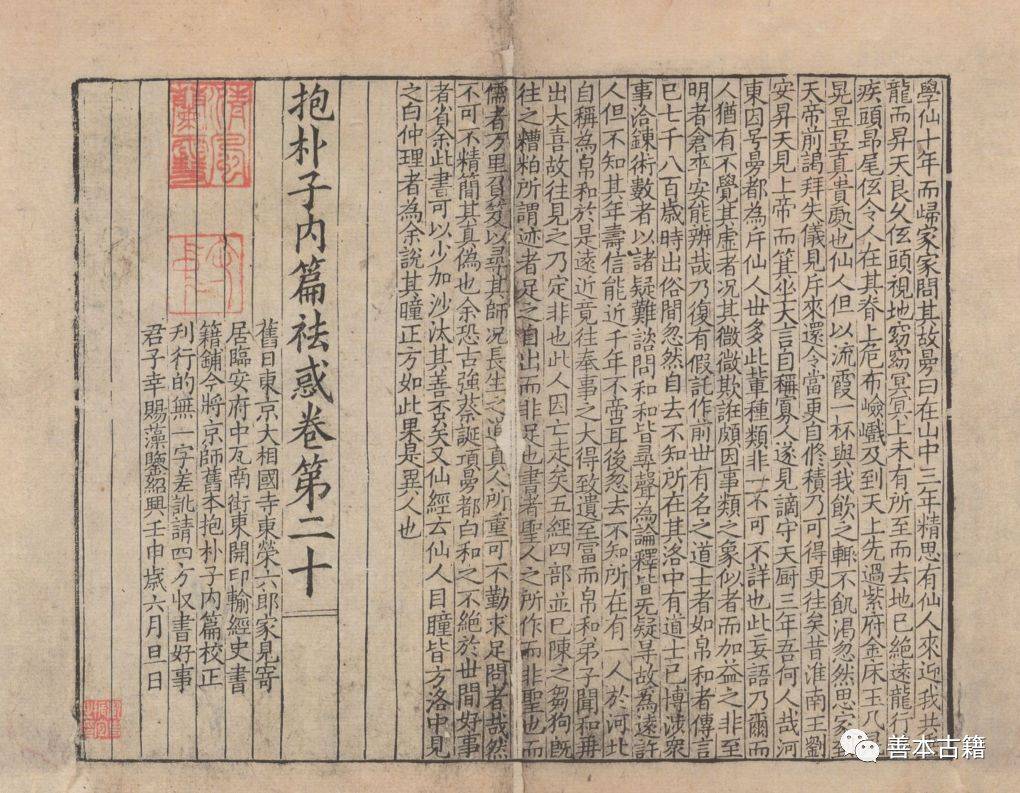 學仙十年而歸家家問其故曼曰在山中三年精思有仙人來迎我共乗
龍而昇天良久低頭視地窈窈冥冥上未有所至而去地已絕遠龍行甚
疾頭昻尾低令人在其脊上危布嶮巇及到天上先過紫府金床玉几晃
晃昱昱真貴處也仙人但以流霞一杯與我飲之輙不飢渴忽然思家到
天帝前謁拜失儀見斥來還令當更自修積乃可得更往矣昔淮南王劉
安昇天見上帝而箕坐大言自稱寡人遂見謫守天厨三年吾何人哉河
東因号曼都為斥仙人丗多此輩種類非一不可不詳也此妄語乃爾而
人猶有不覺其虚者况其微微欺誑頗因事類之象似者而加益之非至
明者倉卒安能辨哉乃復有假託作前丗有名之道士者如帛和者傳言
已七千八百歳時出俗間忽然自去不知所在其洛中有道士已博涉衆
事洽錬術數者以諸疑難諮問和和皆尋聲為論釋皆无疑旱故為遠許
人但不知其年壽信能近千年不啻耳後忽去不知所在有一人於河北
自稱為帛和於是遠近竟往奉事之大得致遺至富而帛和弟子聞和再
出大喜故往見之乃定非也此人因亡走矣五經四部並已陳之芻狗既
往之糟粕所謂迹者足之自出而非足也書者聖人之所作而非聖也而
儒者万里負笈以尋其師况長生之道真人所重可不勤求足問者哉然
不可不精簡其真偽也余恐古強蔡誕項曼都白和之不絕於丗間好事
者省余此書可以少加沙汰其善否矣又仙經云仙人目瞳皆方洛中見
之白仲理者為余說其瞳正方如此果是異人也
抱朴子内篇袪惑卷第二十
舊日東京大相國寺東榮六郎家見寄
居臨安府中瓦南街東開印輸經史書
籍鋪今將京師舊本抱朴子内篇校正
刋行的無一字差訛請四方収書好事
君子幸賜藻鑒紹興壬申歳六月旦日
善本古籍